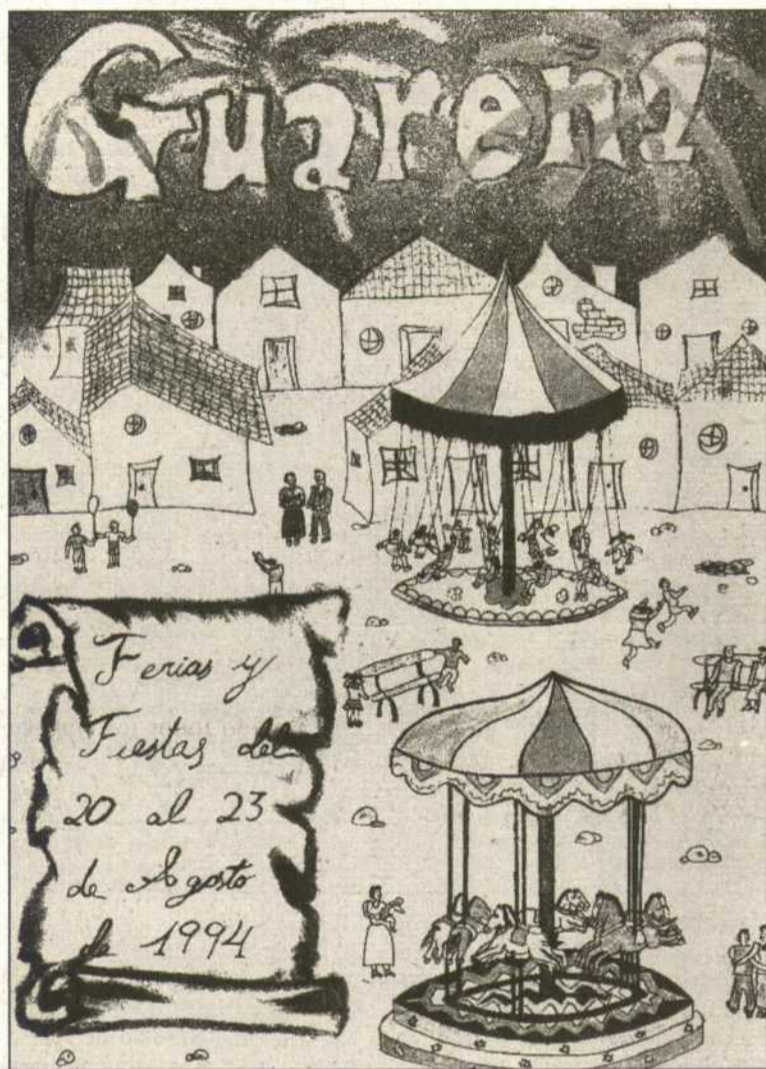 Guareña
Ferias y
Fiestas del
20 al 23
de Agosto
de 1994